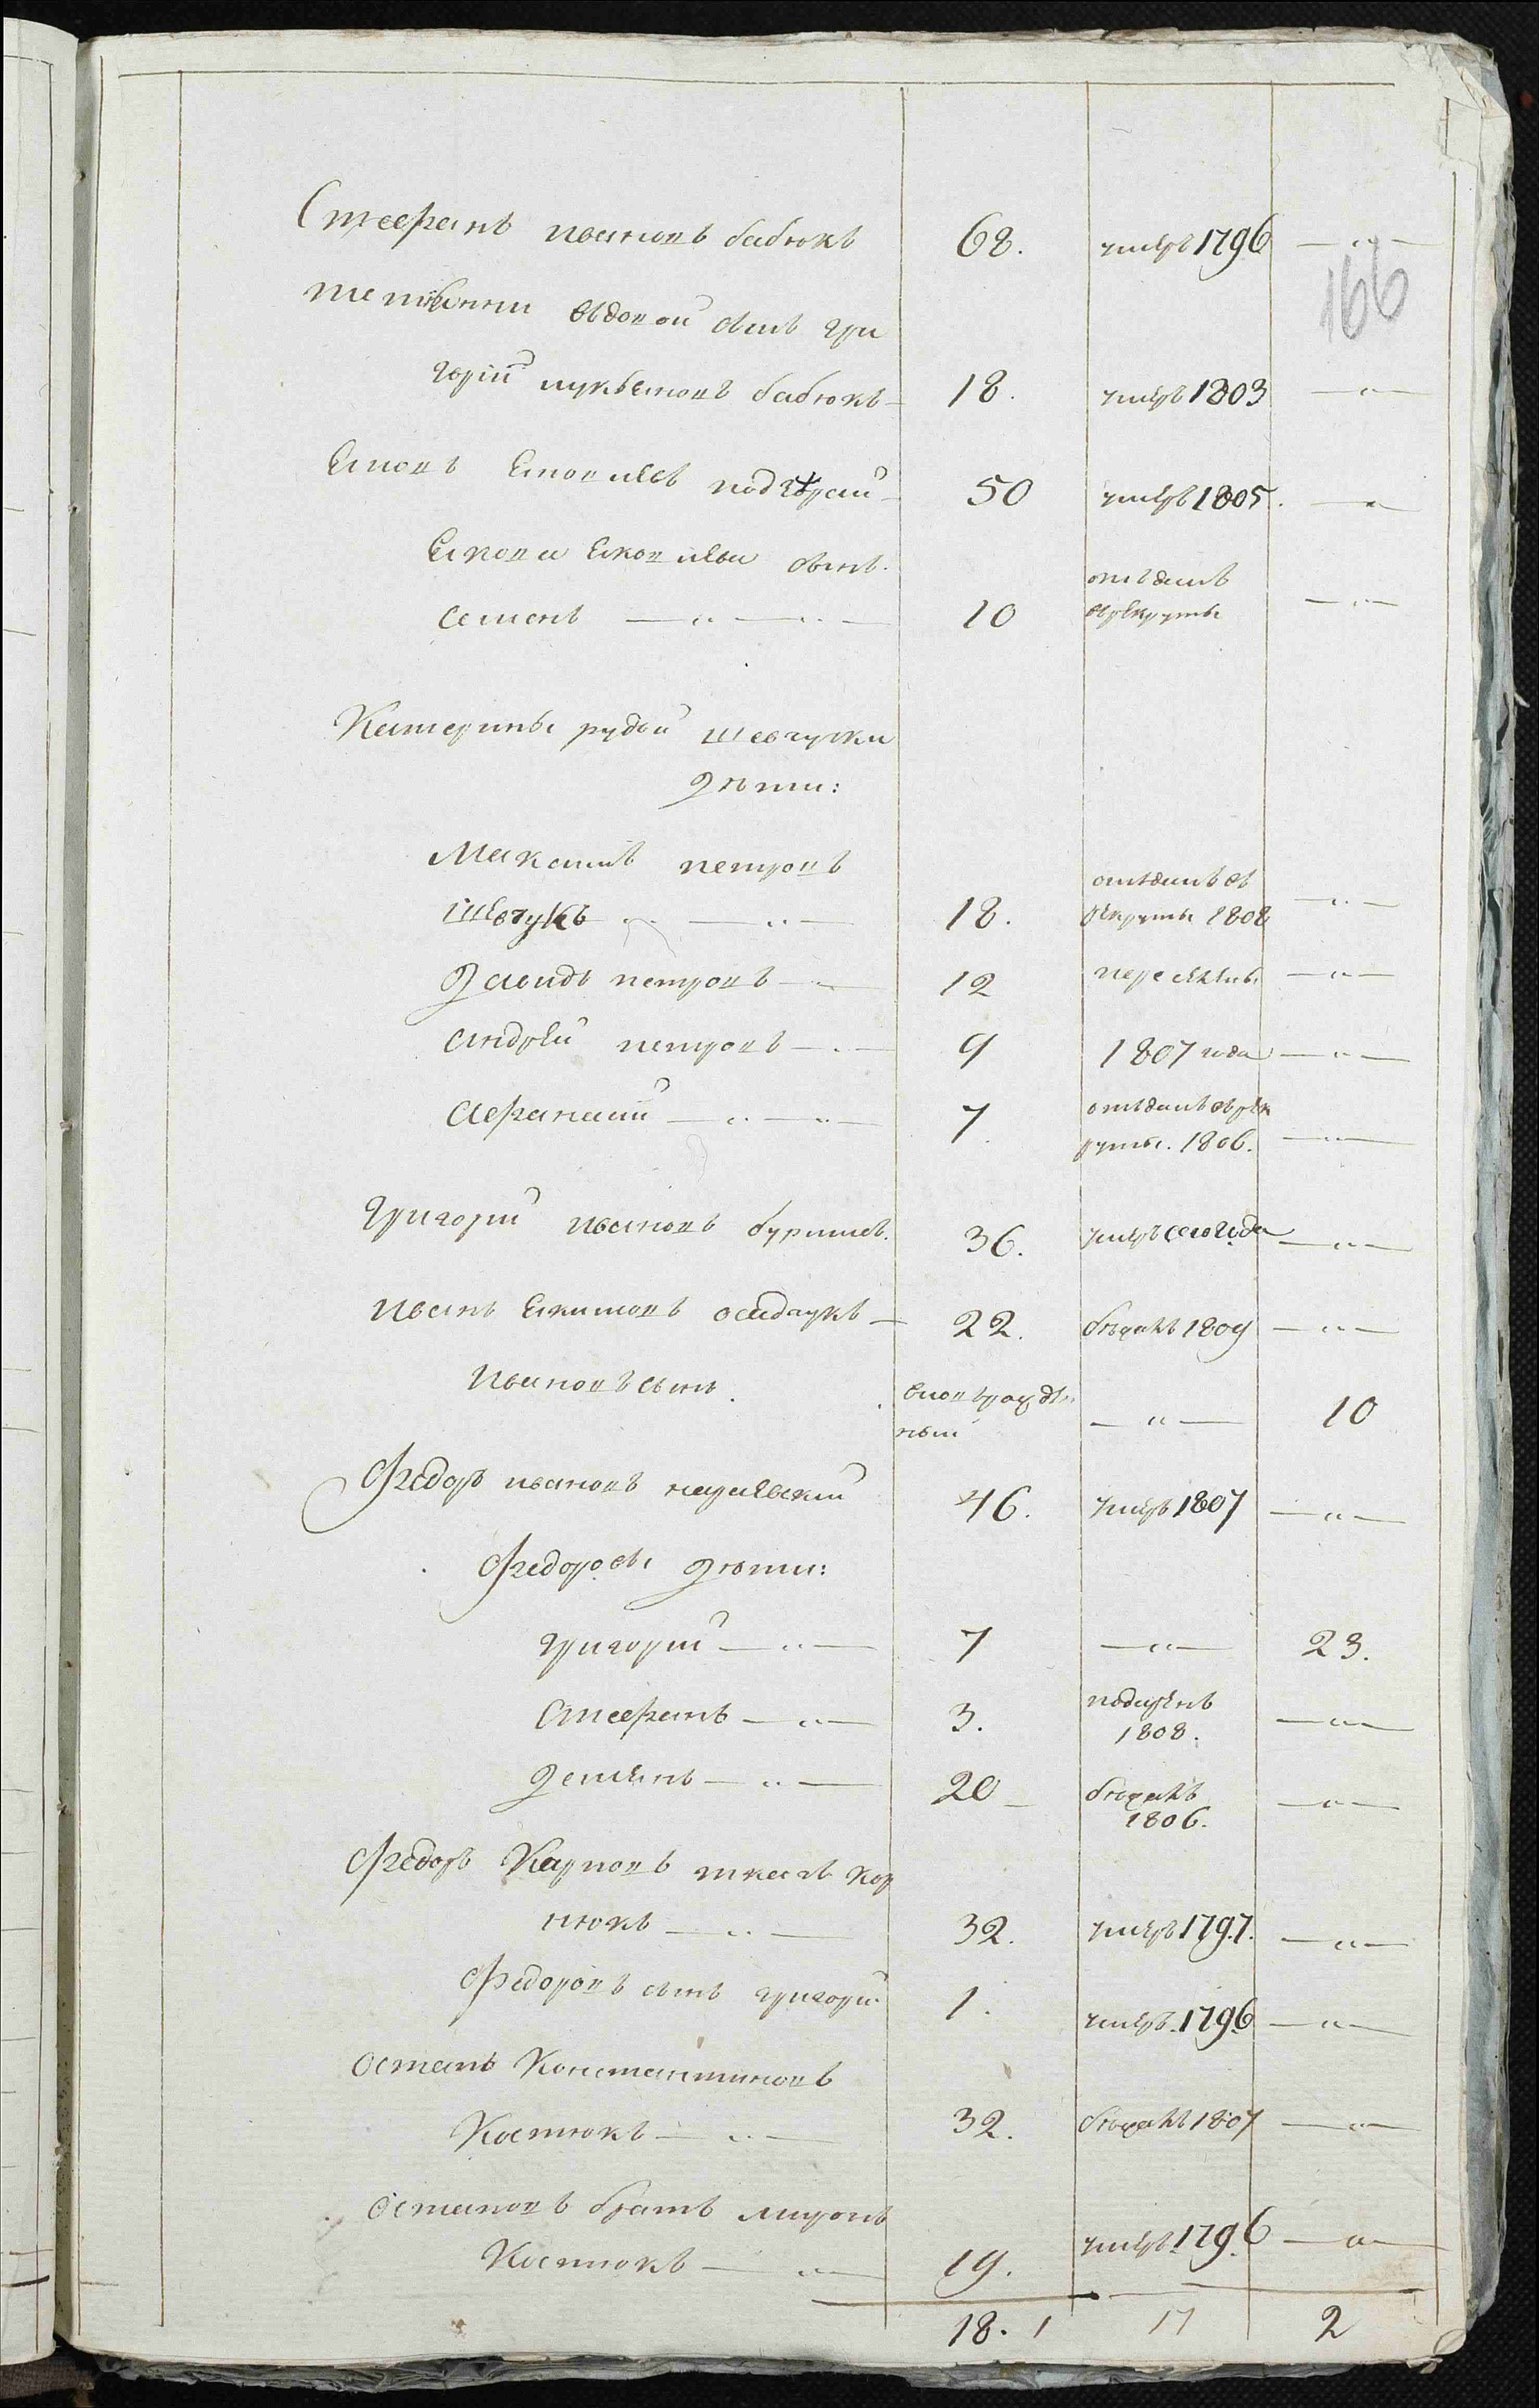 Стефанъ ивановъ бабюкъ 68. умеръ 1796 —"—
166
вдовои сынъ гри
горій лукьяновъ бабюкъ 18. умеръ 1803 —"—
Яковъ Яковлевъ 50 умеръ 1805. —"—
Якова Яковлева сынъ
семенъ —"—"— 10 отъданъ
врекруты —"—
Катерины рудой шевчучки
дѣти:
Максимъ петровъ
шевчукъ —"— 18. отъданъ въ
рекруты 1808 —"—
давидъ петровъ —"— 12 переселены —"—
андрей петровъ —"— 9 1807 года —"—
афанасій —"—"— 7. отъданъ врек
руты. 1806. —"—
григорій ивановъ 36. умеръ сего года —"—
иванъ Якимовъ осадчукъ — 22. бѣжалъ 1809 —"—
ивановъ сынъ. вновьрожден
ный —"— 10
Федоръ ивановъ 46. умеръ 1807 —"—
Федоровы дѣти:
григорій —"— 7 —"— 23.
Стефанъ —"— 3. 1808. —"—
демянъ —"— 20 бѣжалъ
1806. —"—
Федоръ Карповъ ткачъ кор
нюкъ —"— 32. умеръ 1797. —"—
Федоровъ сынъ григорій 1. умеръ. 1796 —"—
Остапъ Константиновъ
Костюкъ —"— 32. бѣжалъ 1807 —"—
Остаповъ братъ миронъ
Костюкъ —"— 19. умеръ 1796 —"—
18. 1 17 2